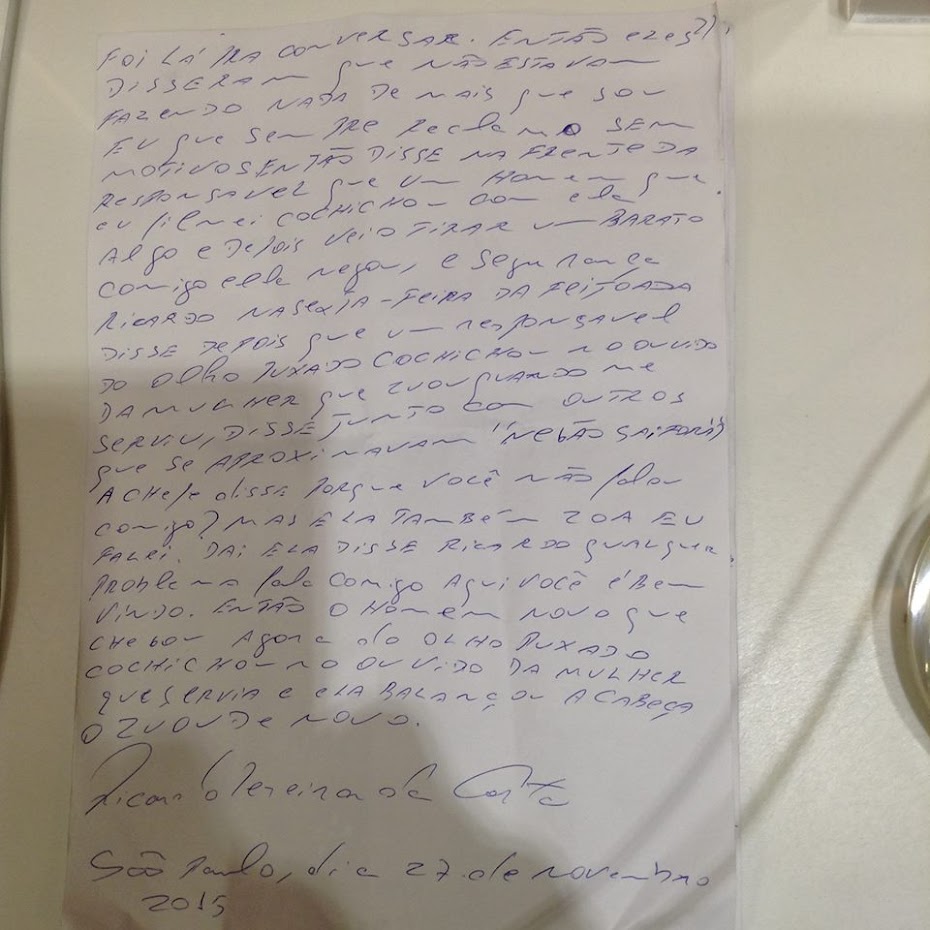 FOI LÁ PRA CONVERSAR. ENTÃO ELES
DISSERAM que NÃO ESTAVAM
FAZENDO NADA DE MAIS que SOU
EU que SemPRE Reclamo SEM
MOTIVOS ENTÃO DISSE NA FRENTE DA
RESPONSAVEL que um Homem que
eu filmei COCHICHOU com ela
Algo e DEPOIS VEIO TIRAR um BARATO
comigo ela negou, e Segurança
RICARDO NA SEXTA-FEIRA DA FEIJOADA
DISSE DEPOIS que um responsavel
DO Olho PUXADO COCHICHOU NO OUVIDO
DA MULHER que ZUOU QUANDO me
SERVIU, DISSE JUNTO com OUTROS
que SE APROXIMAVAM "NEGÃO SAI FORA"
A Chefe disse PORque VOCÊ NÃO falou
comigo? MAS ELA TAMBÉM ZOA EU
FALEI. DAI ELA DISSE RICARDO QUALQUER
PROblema fala comigo AQUI VOCÊ É BEM
VINDO. ENTÃO O Homem NOVO que
CHEGOU Agora do OLHO PUXADO
COCHICHOU NO OUVIDO DA MULHER
que SERVIA e ELA BALANÇOU A CABEÇA
O ZUOU DE NOVO.
Ricardo Pereira da Costa
São Paulo, dia 27 de novembro
2015